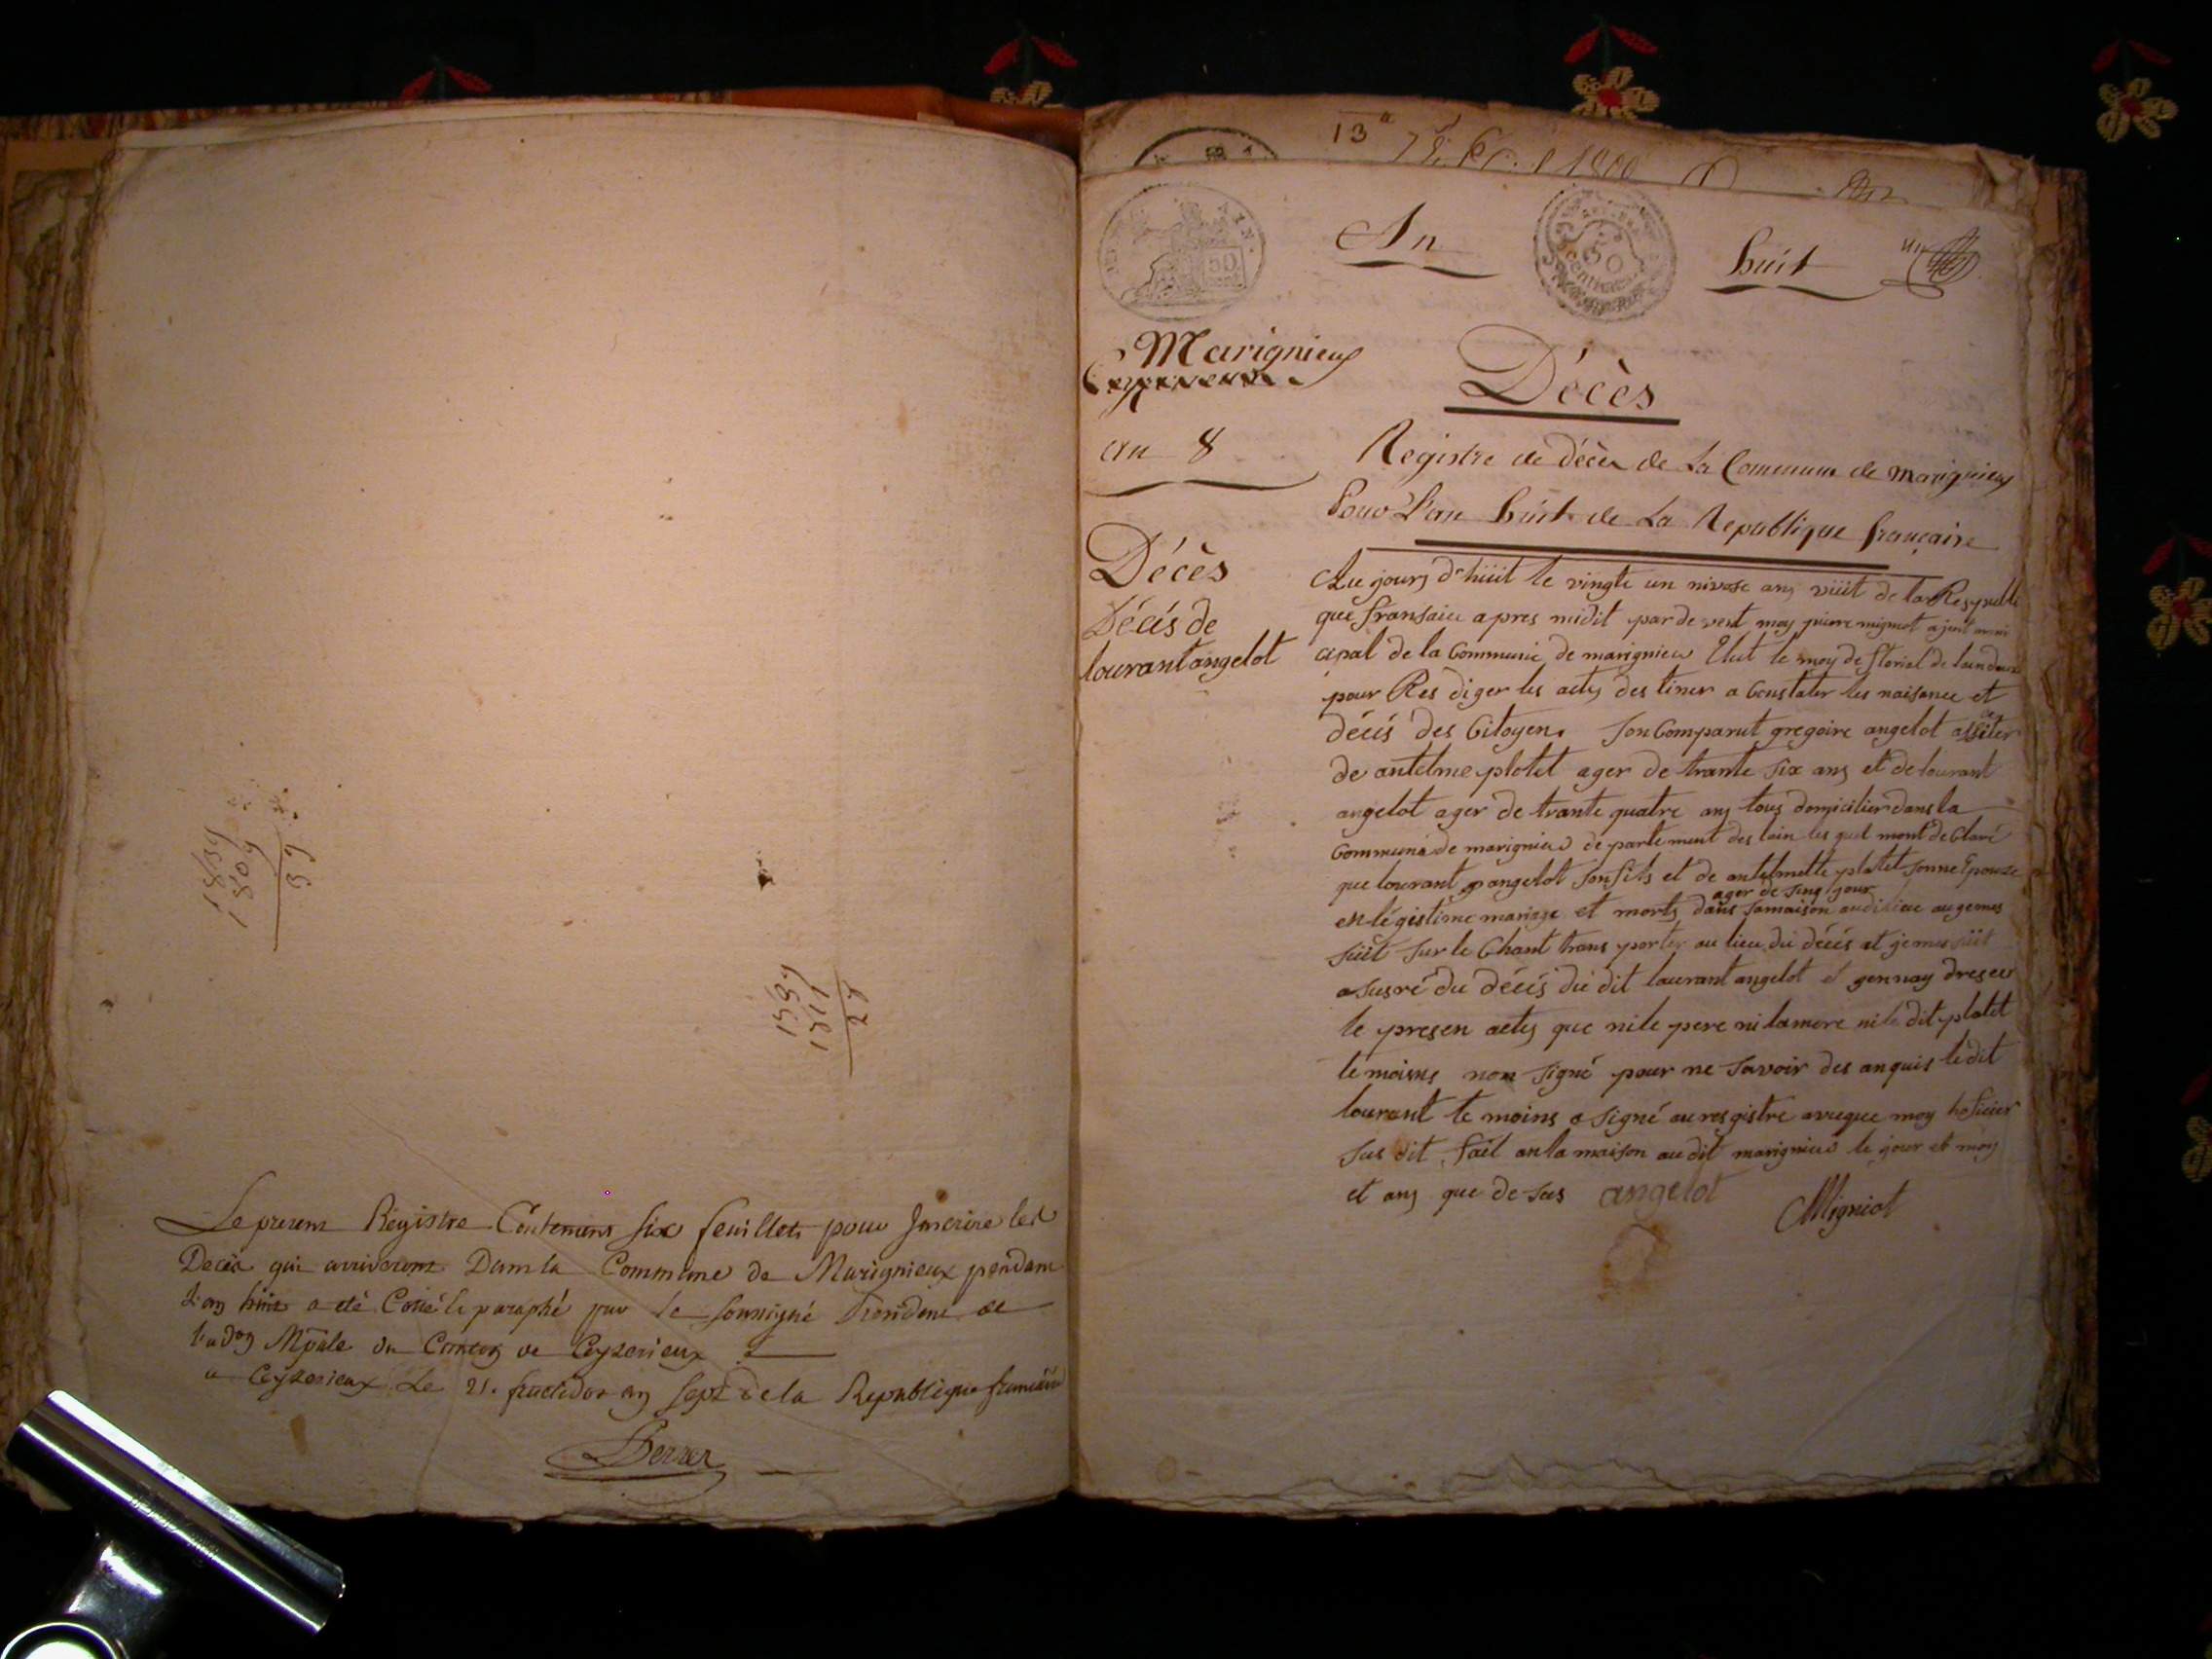 1839
1809
39
1539
1511
28
Le present Registre Contenant six feuillets pour Inscrire les
Décès qui arriveront Dans la Commune de Marignieux pendant
L'an huit a été Coté & paraphé par le soussigné President de
l'adon Mpale du Canton de Ceyzerieux
a Ceyzerieux Le 21. fructidor an sept de la Republique francaise
13
AIN.
50
An
50
centimes
huit
un
Marignieux
an 8
Décès
Registre de décès de La Commune de marignieux
Pour L'an huit de La Republique française
Décès
Décés de
lourant angelot
Au jours d'hüit le vingte un nivose ans vüit de la Respubli
que fransaise apres midit par de vent moy pierre migniot ajent muni
cipal de la Commune de marignieu Elut le moy de florial de
pour Res diger les actes des tiner a Constater les naisance et
décés des Citoyens Son Comparut gregoire angelot assiter
de antelme plotet ager de trante six ans et de lourant
angelot ager de trante quatre ans tous domicilier dans la
Commune de marignieu de partement des lain les quel mont de Claré
que lourant angelot son fils et de antelmette plotet sonne Epouze
ager de sinq jour
en légistime mariage et morts dans samaison audi lieu au gemes
suit sur le Chant trans porter au lieu du décés et je me suit
asusré du décés du dit laurant angelot et gennay dreser
le presen actes que ni le pere ni lamere ni le dit plotet
temoins non signé pour ne savoir des anquis le dit
lourant te moins a signé au resgistre avuque moy hoficier
sus dit, fait an la maison au dit marignieu le jour et moy
et ans que de sus angelot
Migniot